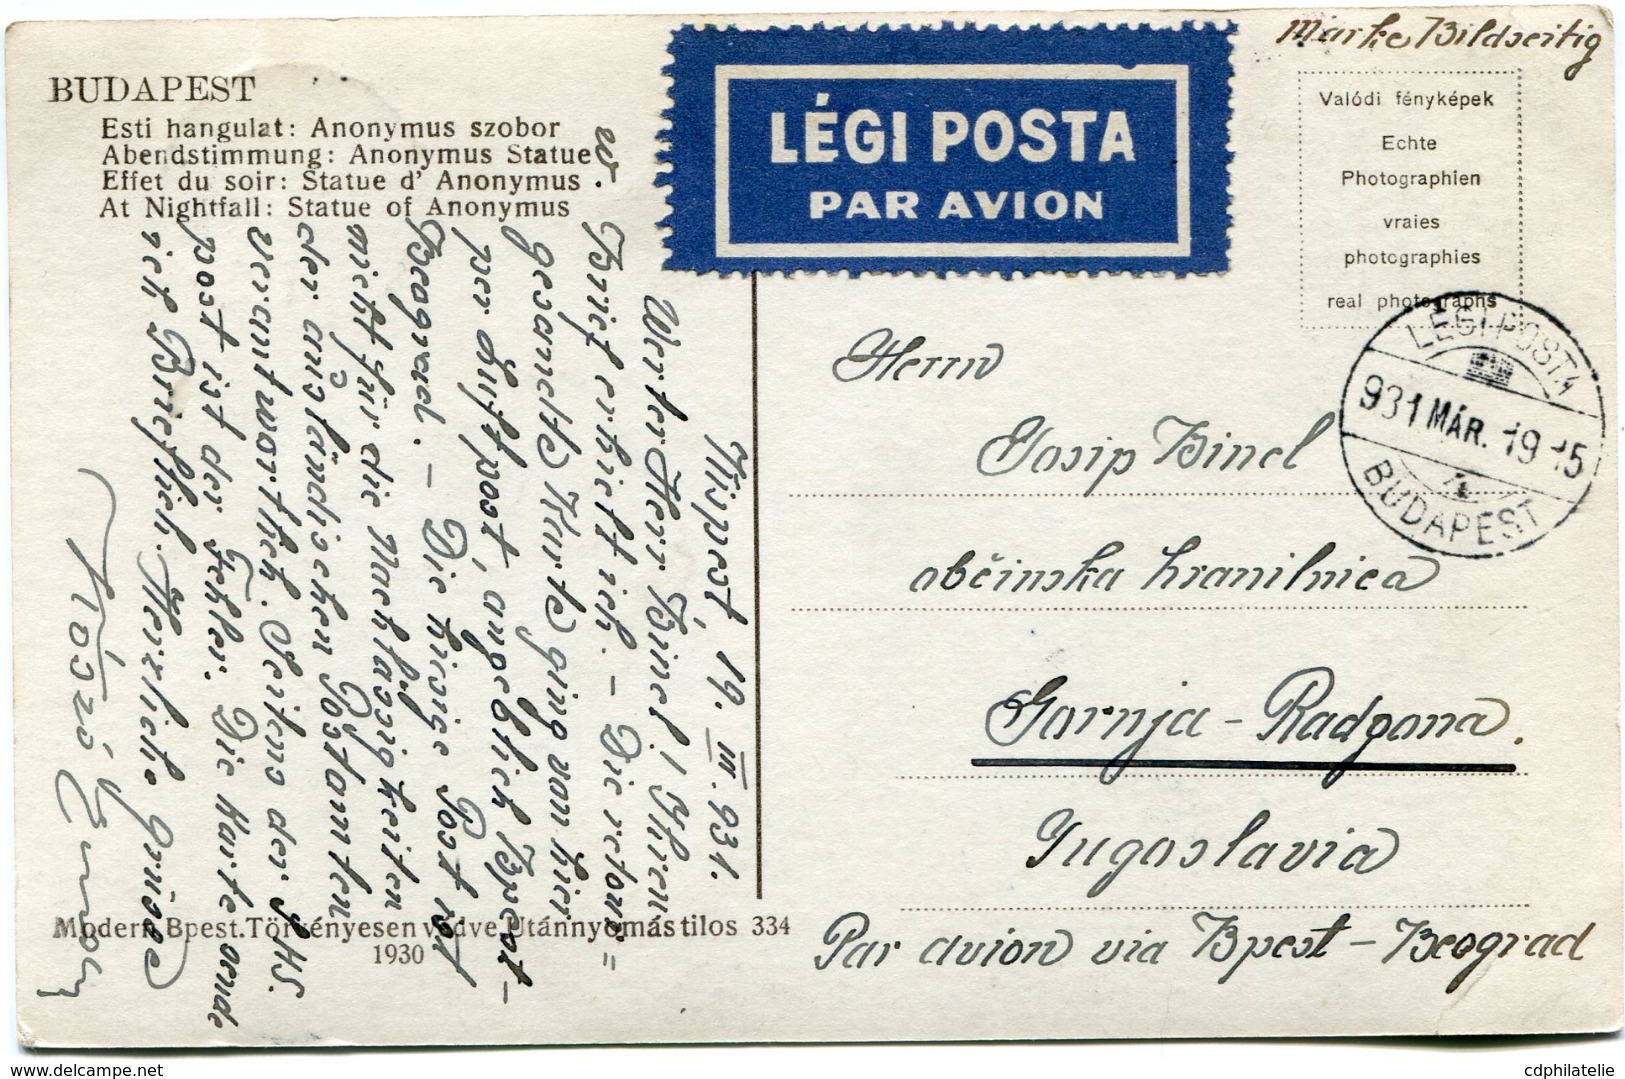 BUDAPEST
Esti hangulat: Anonymus szobor
Abendstimmung: Anonymus Statue
Effet du soir: Statue d' Anonymus .
At Nightfall: Statue of Anonymus
LÉGI POSTA
PAR AVION
Marke Bildseitig
Valódi fényképek
Echte
Photographien
vraies
photographies
real photographs
LÉGI POSTA
931 MÁR. 19 15
BUDAPEST
Herrn
Josip Binel
občinska hranilnica
Gornja - Radgona.
Jugoslavia
Par avion via Bpest - Beograd
Kispest, 19. III. 931.
Werter Herr Binel! Ihren
Brief erhielt ich. - Die retour=
gesandte Karte ging von hier
per Luftpost, angeblich Bpest-
Beograd. - Die hiesige Post ist
nicht für die Nachlässigkeiten
der ausländischen Postamten
verantwortlich. Seitens der JHS.
post ist der Fehler. Die Karte sende
ich Brieflich. Herzliche Grüsse
Modern, Bpest. Törvényesen védve. Utánnyomás tilos 334
1930
cdphilatelie